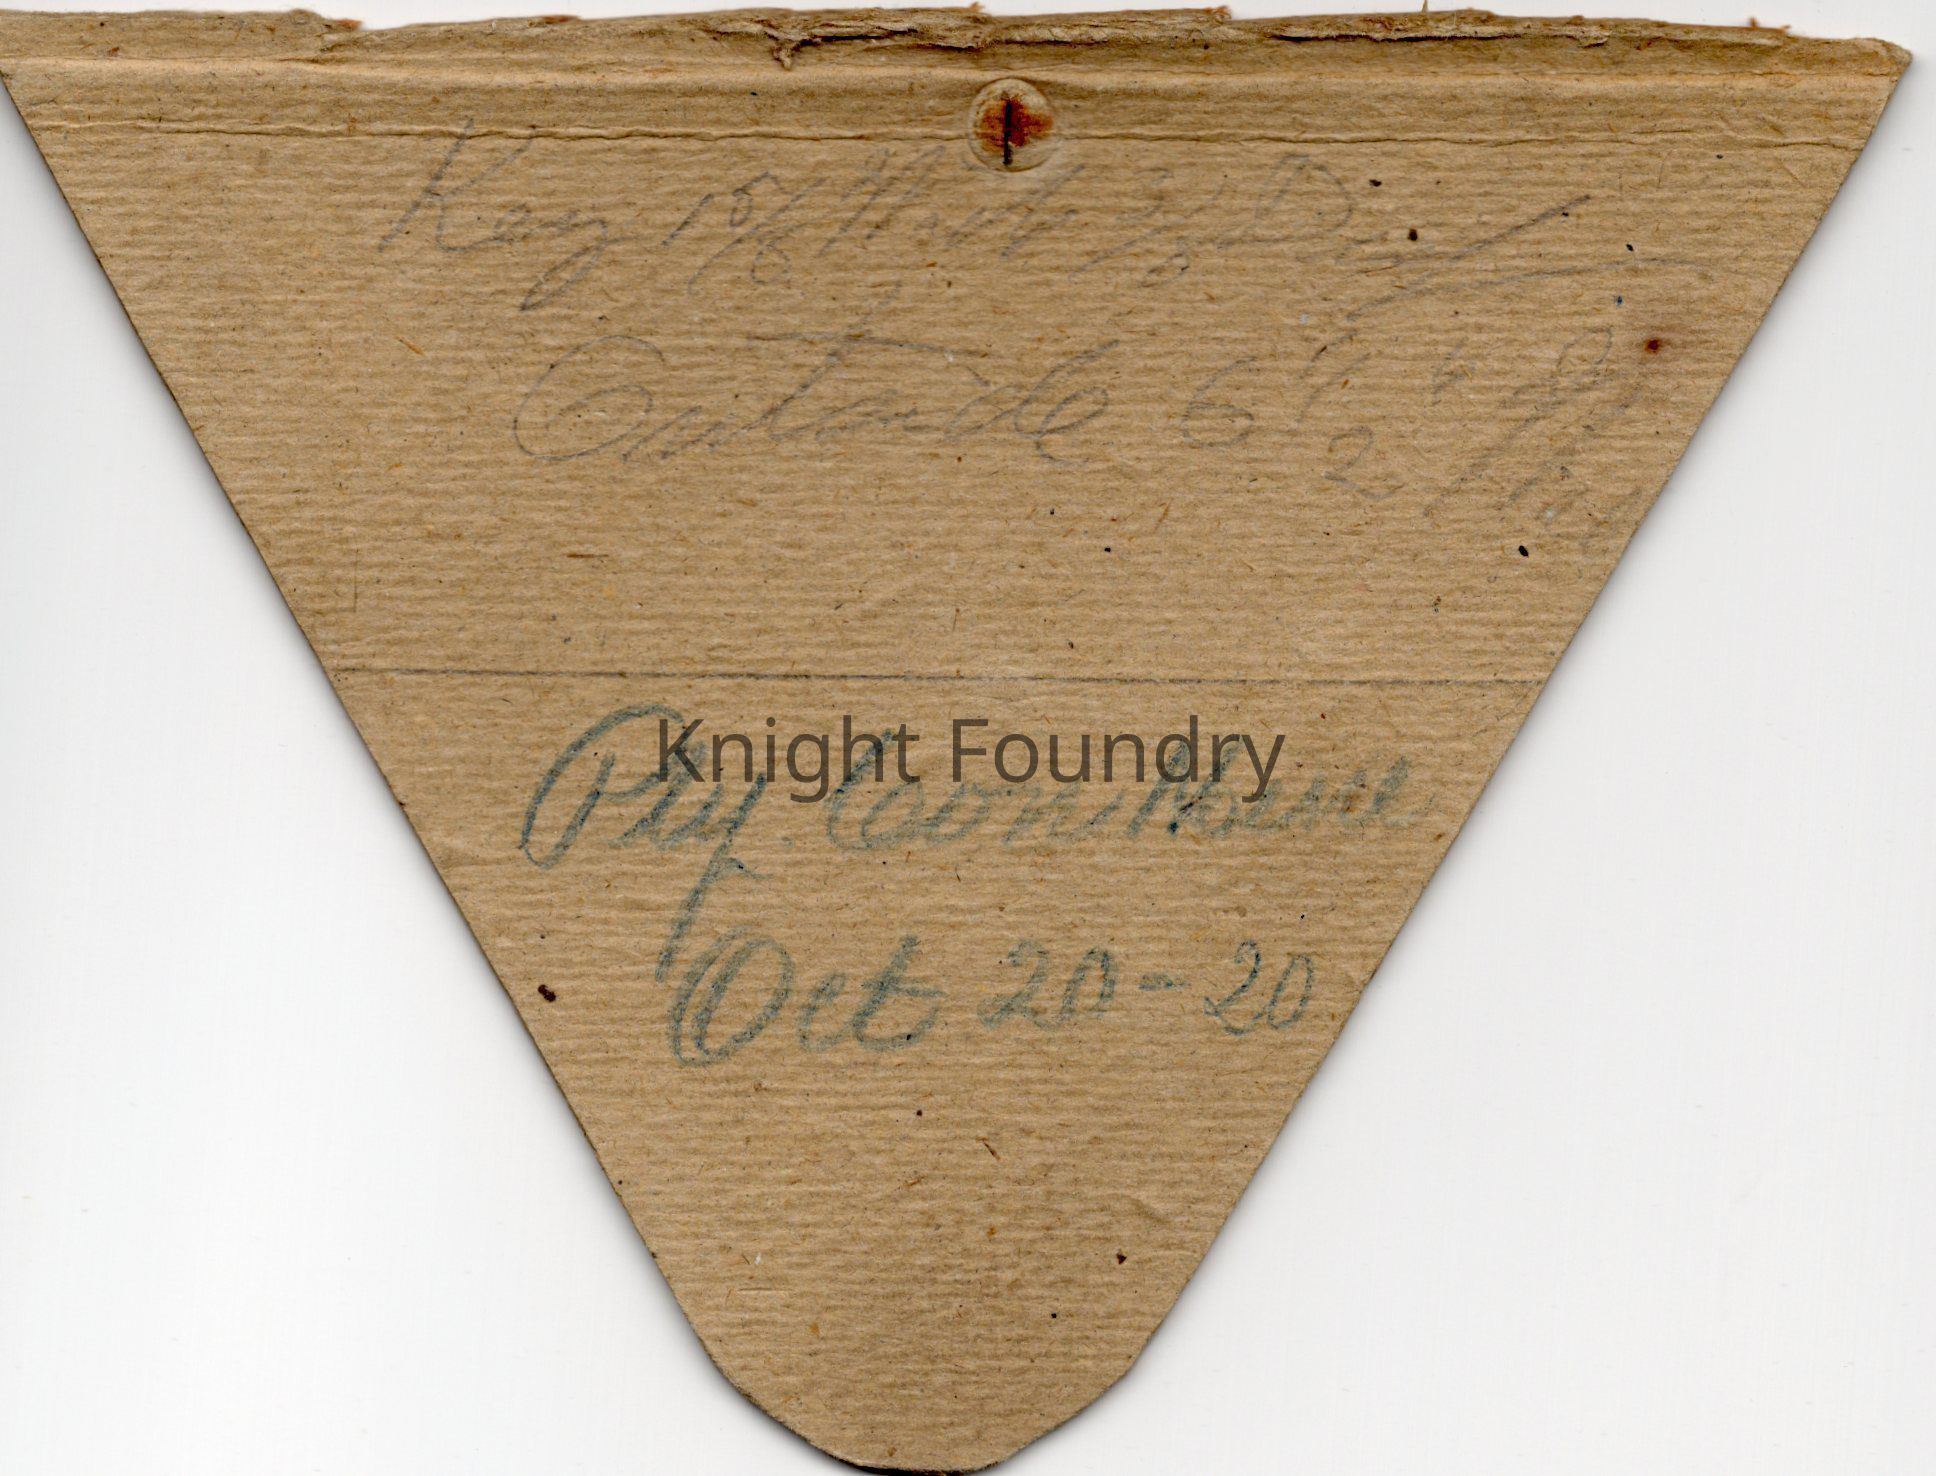 Key 15/16 Wide 3/8 Deep
Outside 6 1/2
Knight Foundry
Ply. Con. Mine
Oct 20-20